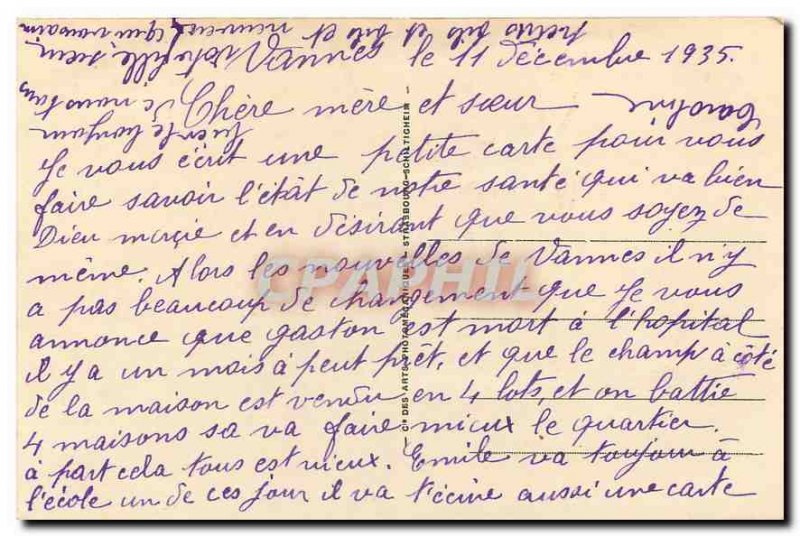 Vannes le 11 décembre 1935.
Chère mère et sœur
Je vous écrit une petite carte pour vous
faire savoir l'état de notre santé qui va bien
Dieu merçie et en désirant que vous soyez de
même. Alors les nouvelles de Vannes il n'y
a pas beaucoup de changement que Je vous
annonce que gaston est mort à l'hopital
il y a un mois à peut prêt, et que le champ à côté
de la maison est vendu en 4 lots, et on battie
4 maisons sa va faire mieux le quartier.
à part cela tous est vieux. Emile va toujour à
l'école un de ces jour il va t'écrire aussi une carte
votre fille, sœur
petits fils et fils et neuveux
qui
de nous tous
Cie DES ARTS PHOTOMÉCANIQUES — STRASBOURG-SCHILTIGHEIM
CPAPHIL